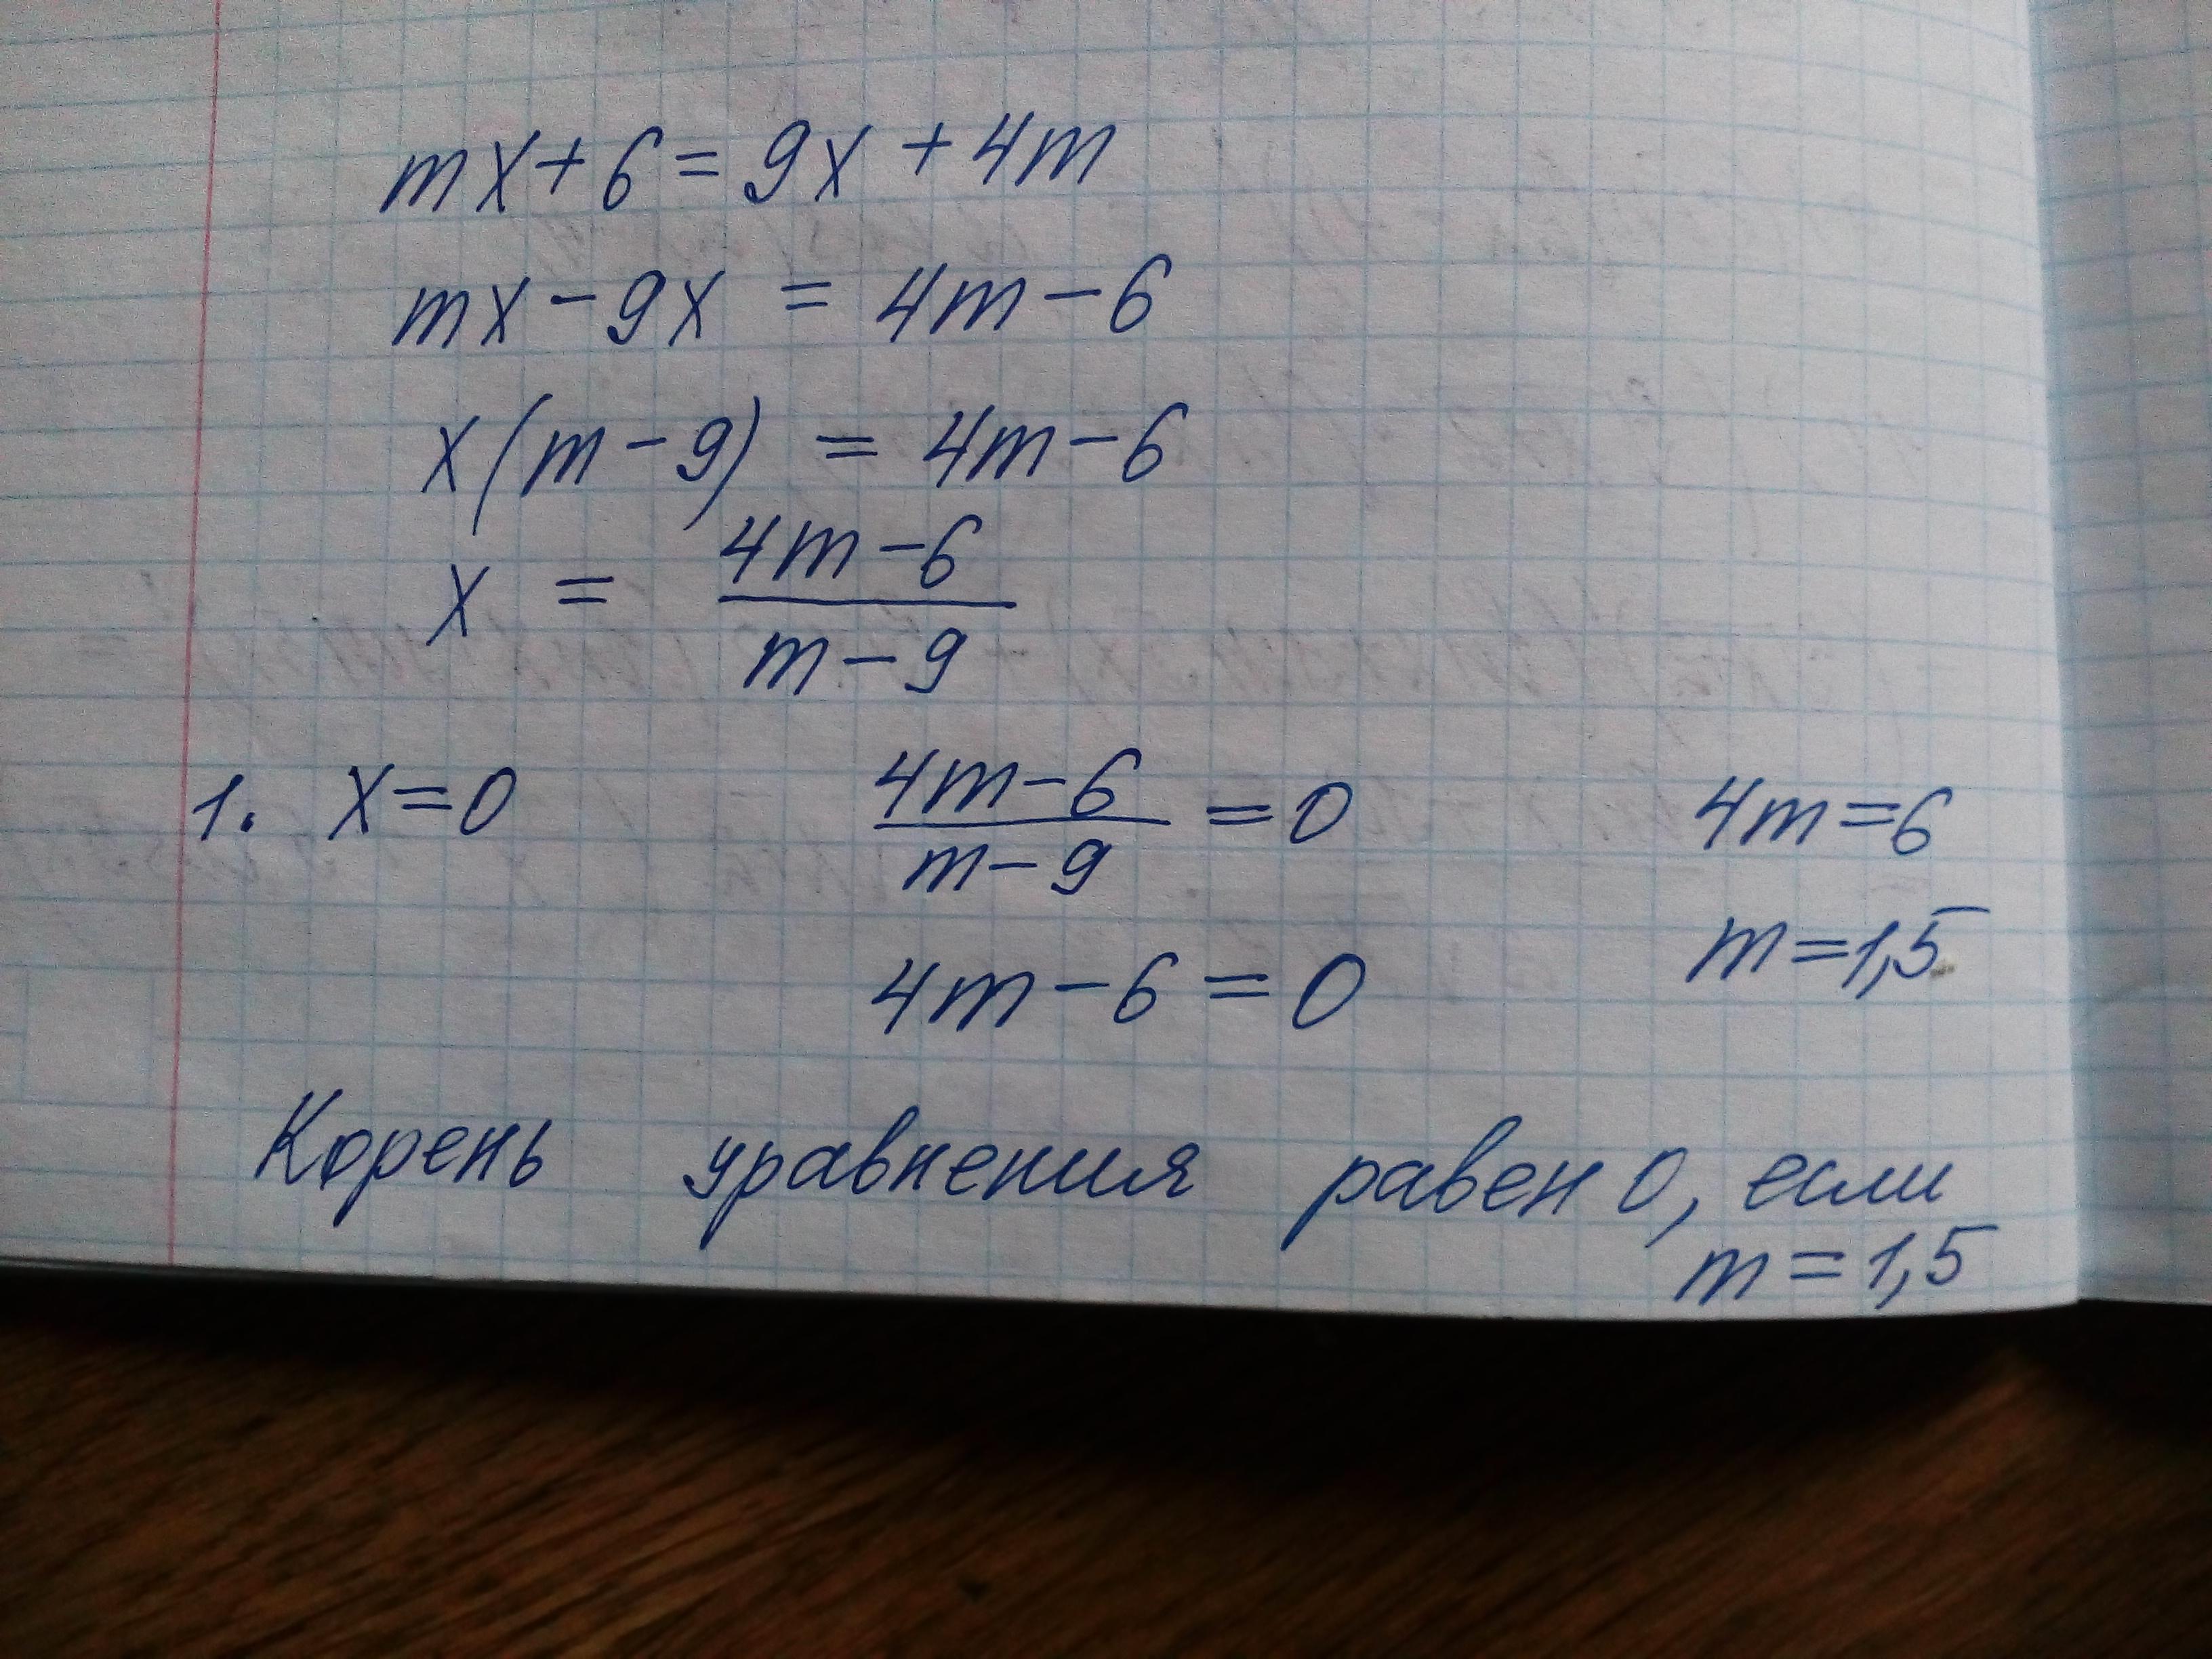 mx+6=9x+4m
mx-9x=4m-6
x(m-9)=4m-6
x = (4m-6)/(m-9)
1. x=0 (4m-6)/(m-9) =0 4m=6
4m-6=0 m=1,5
Корень уравнения равен 0, если
m=1,5